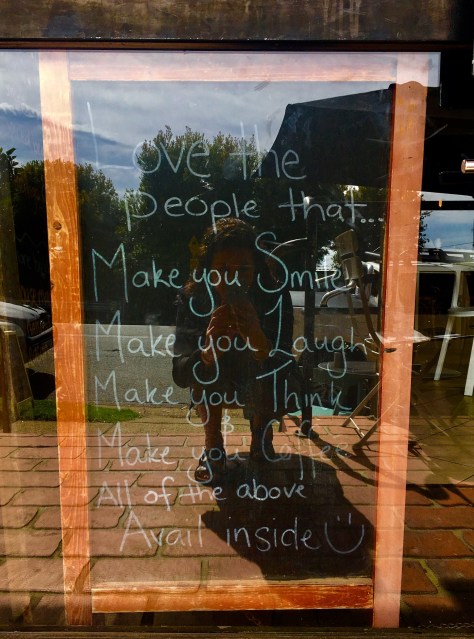 Love the
people that...
Make you Smile
Make you Laugh
Make you Think
&
Make you Coffee
All of the above
Avail inside